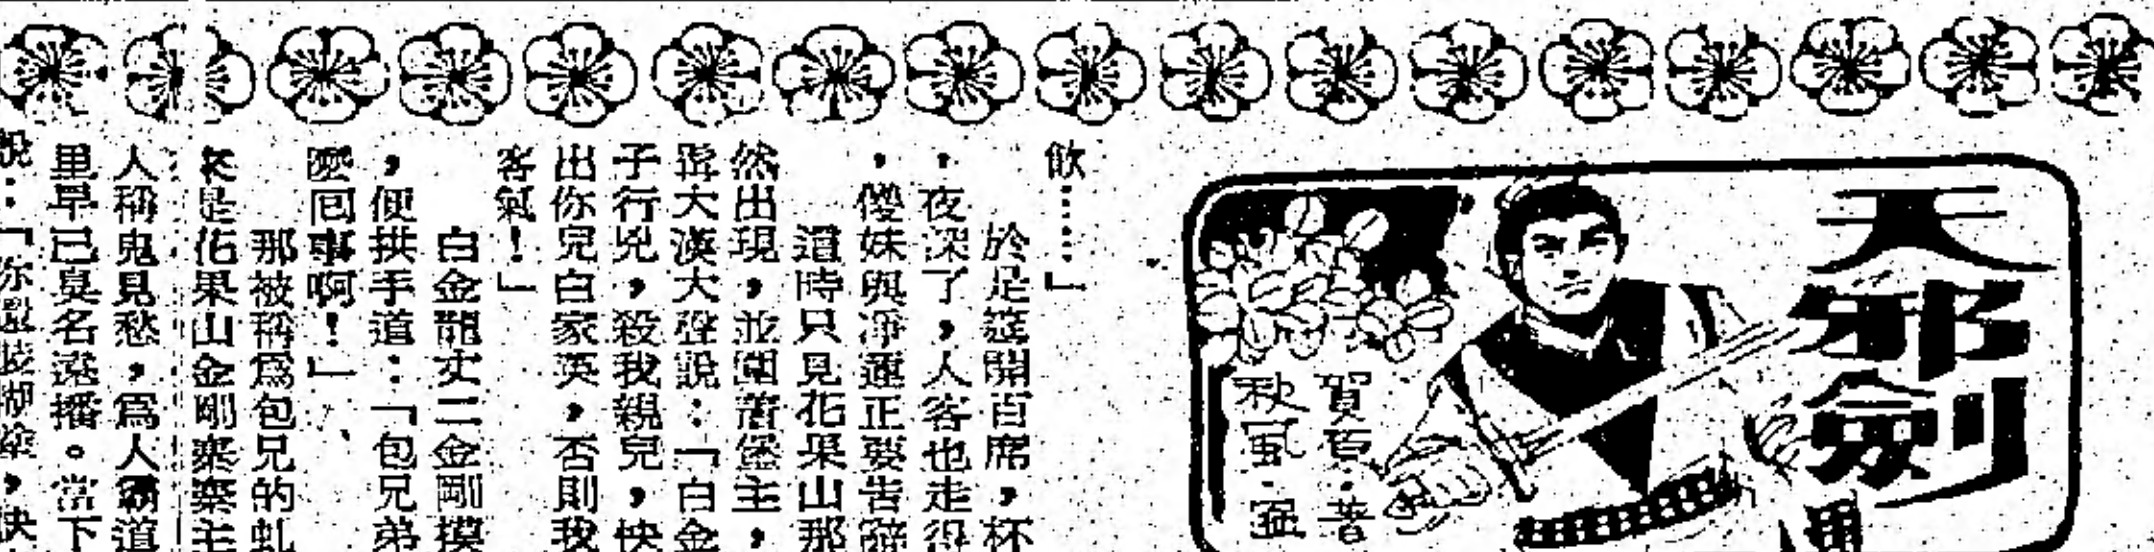 天邪劍
賀頁·著
秋風·
飲……」
於是筵開百席,杯
,夜深了,人客也走得
,傻妹與淨蓮正要告辭
這時只見花果山那
然出現,並圍著堡主,
髯大漢大聲說:「白金
子行兇,殺我親兒,快
出你兒白家英,否則我
客氣!」
白金龍丈二金剛摸
,便拱手道:「包兄弟
麼回事啊!」
那被稱爲包兄的虬
來是花果山金剛寨寨主
人稱鬼見愁,爲人霸道
里早已臭名遠播。當下
說:「你還裝糊塗,快